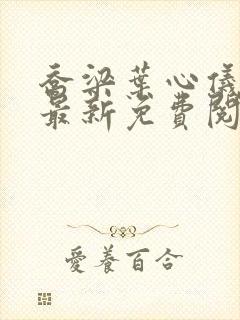 喬梁葉心儀
最新免費閱
愛養百合